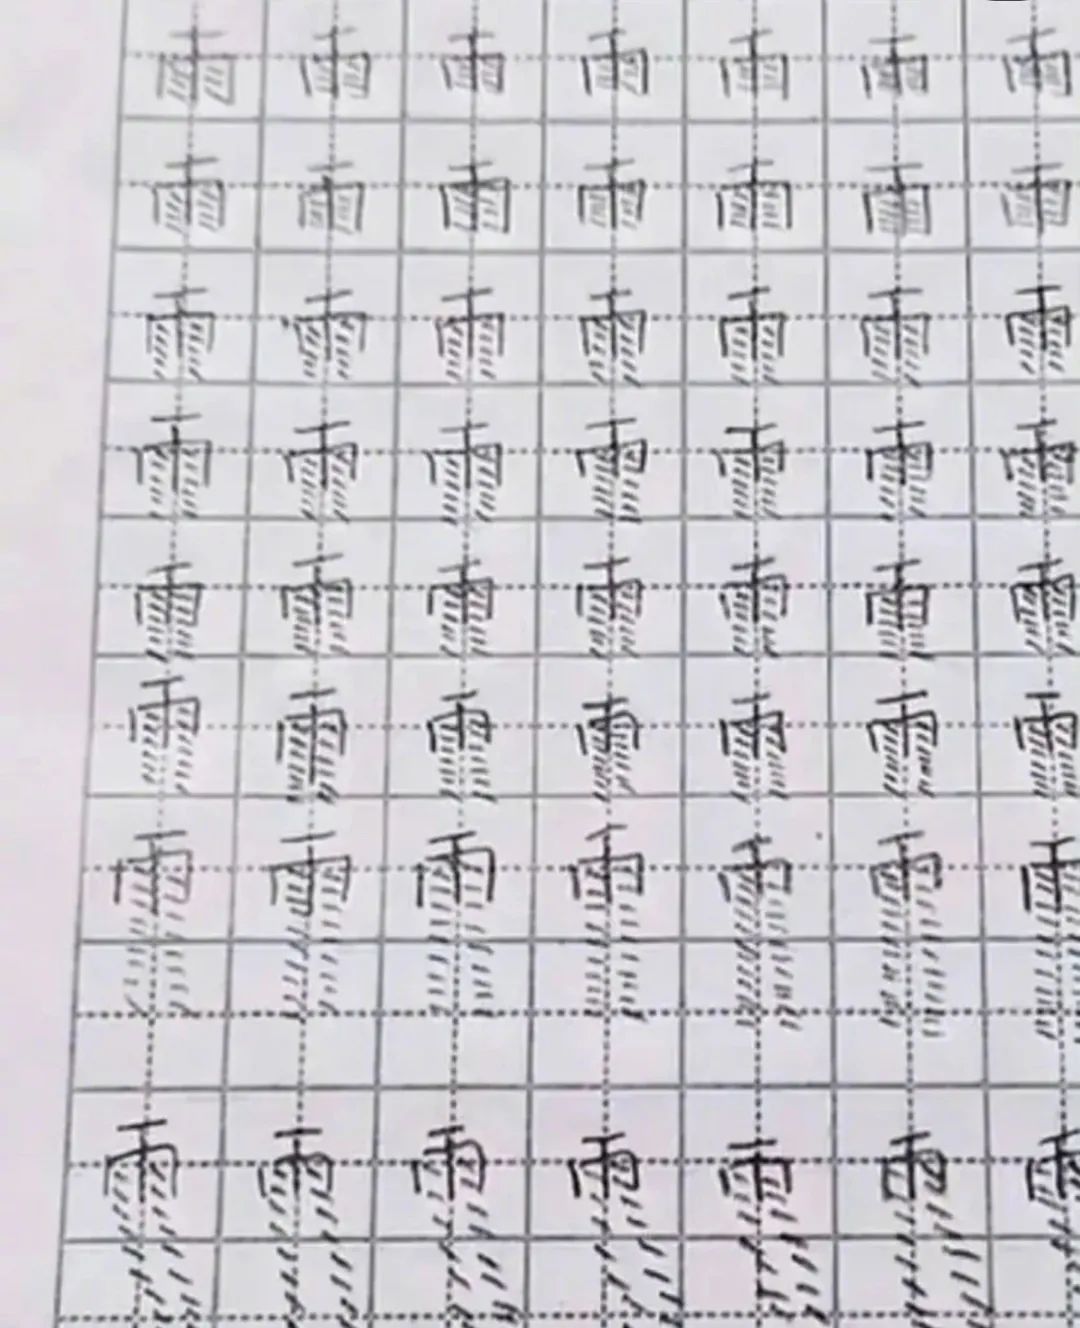 雨雨雨雨雨雨雨
雨雨雨雨雨雨雨
雨雨雨雨雨雨雨
雨雨雨雨雨雨雨
雨雨雨雨雨雨雨
雨雨雨雨雨雨雨
雨雨雨雨雨雨雨
雨雨雨雨雨雨雨